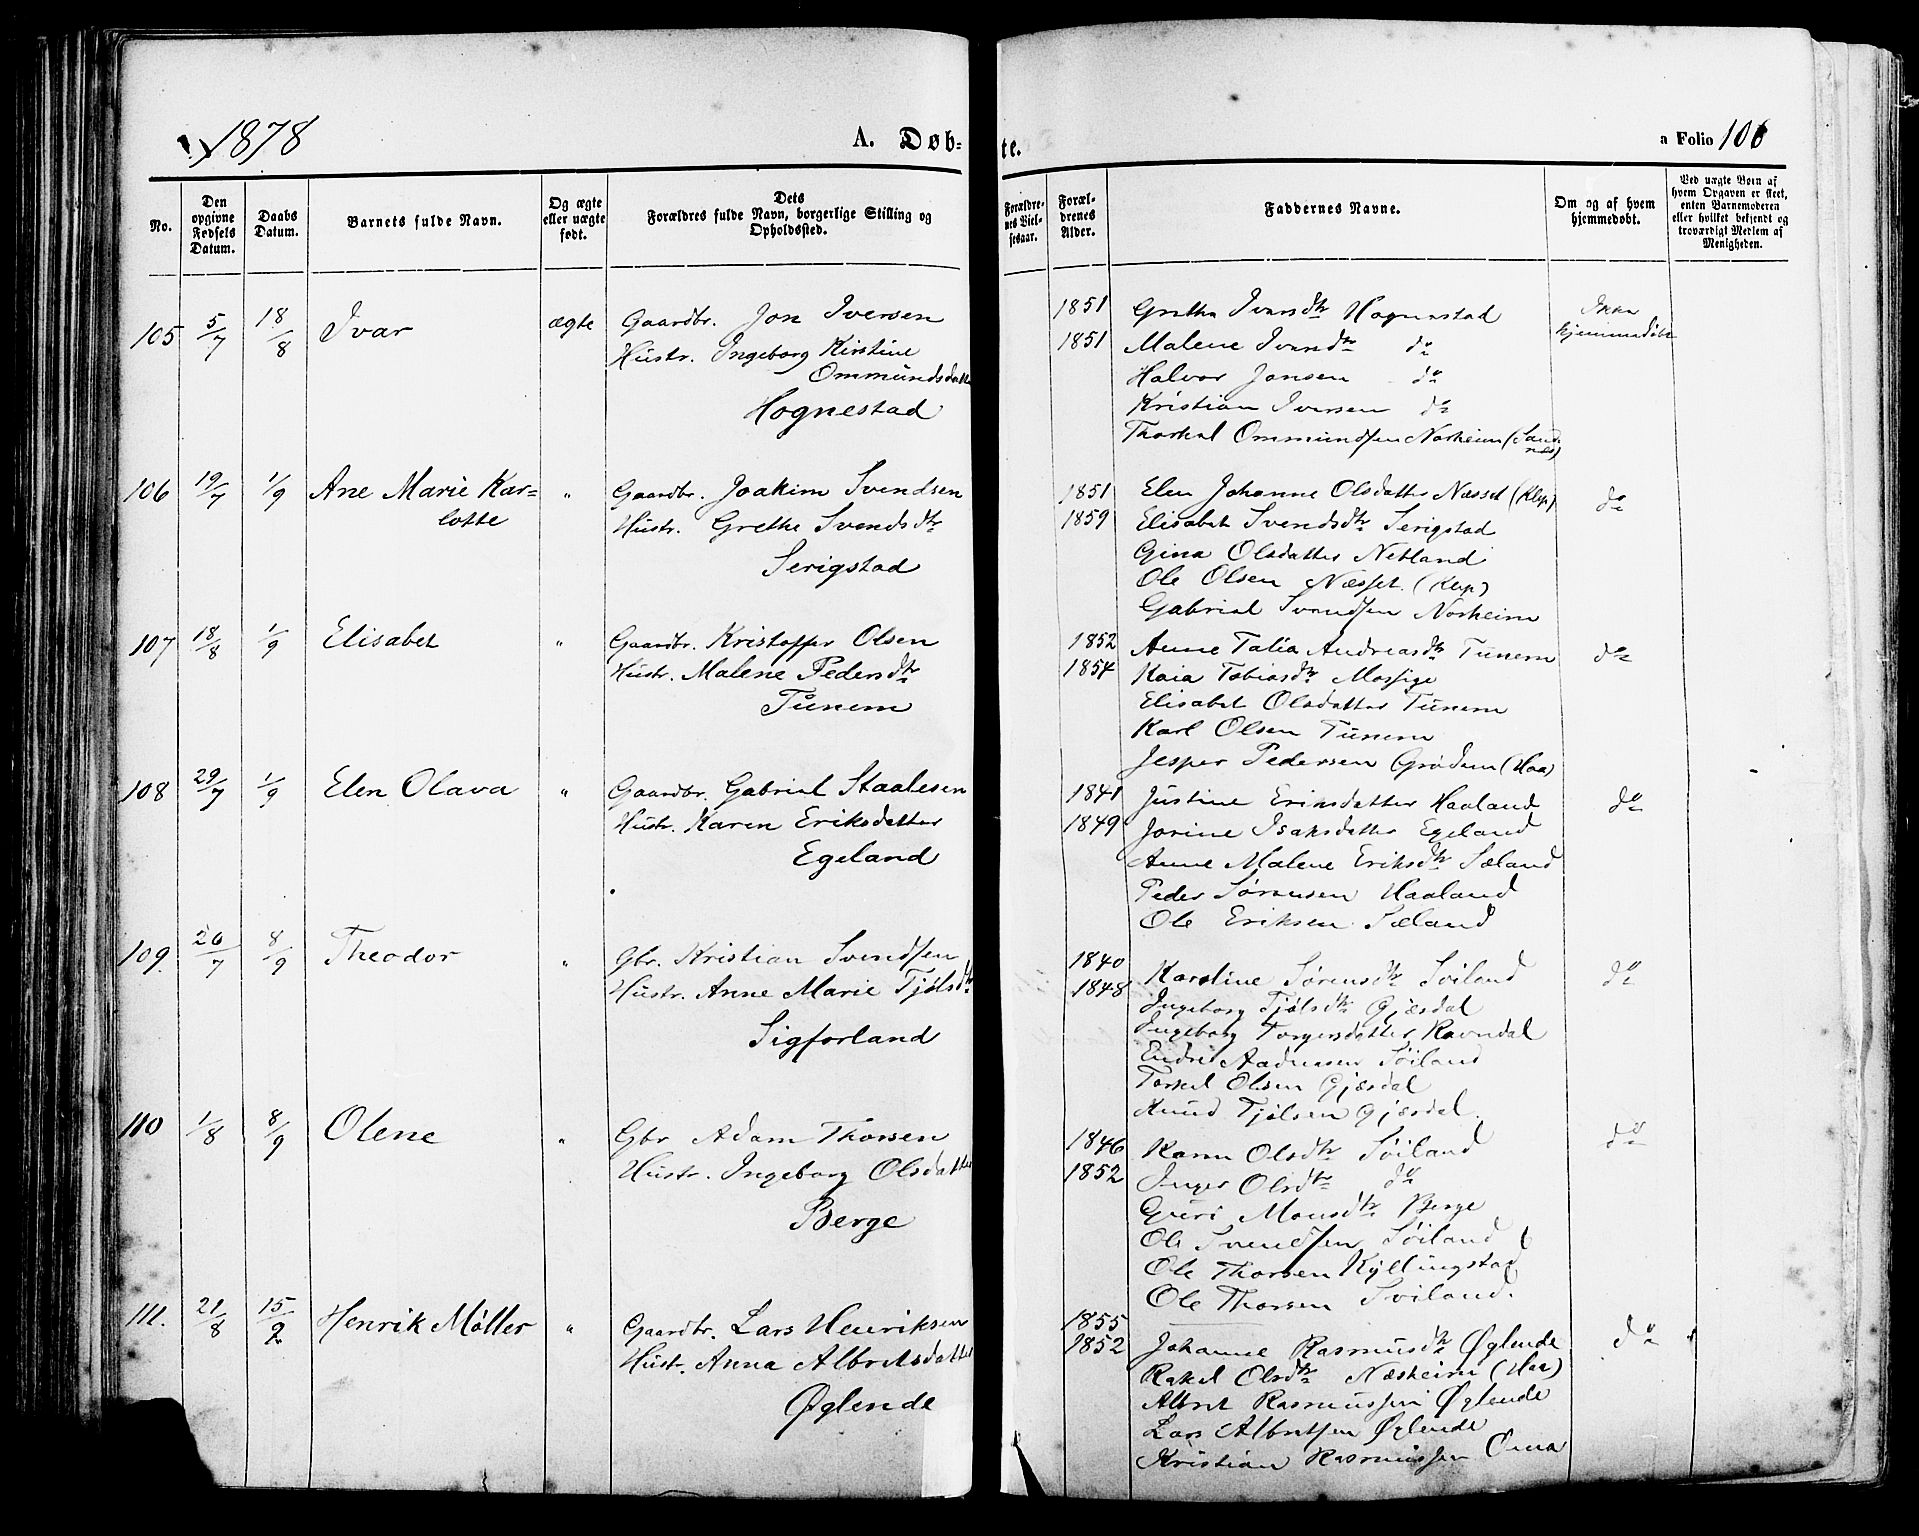 1878
A. Døb-
te.
a Folio 106
No.
Den opgivne Fødsels Datum.
Daabs Datum.
Barnets fulde Navn.
Og ægte eller uægte født.
Dets Forældres fulde Navn, borgerlige Stilling og Opholdssted.
Forældre-nes Viel-sesaar.
Foræl-drenes Alder.
Faddernes Navne.
Om og af hvem hjemmedøbt.
Ved uægte Børn af hvem Opgaven er skeet, enten Barnemoderen eller hvilket bekjendt og troværdigt Medlem af Menigheden.
105 5/7 18/8 Ivar ægte Gaardbr. Jon Iversen
Hustr. Ingeborg Kirstine
Ommundsdatter
Hognestad
1851 Grethe Ivarsdtr Hognestad Ikke
1851 Malene Ivarsdtr do hjemmedøbt
Halvor Jonsen do
Kristian Iversen do
Thorkel Ommundsen Norheim (Sand-
næs)
106 19/7 1/9 Ane Marie Kar= " Gaardbr. Joakim Svendsen
lotte Hustr. Grethe Svendsdtr
Serigstad
1851 Elen Johanne Olsdatter Næsset (Klep) do
1859 Elisabet Svendsdtr Serigstad
Gina Olsdatter Netland
Ole Olsen Næsset. (Klep)
Gabriel Svendsen Norheim
107 18/8 1/9 Elisabet " Gaardbr. Kristoffer Olsen
Hustr. Malene Pedersdtr
Tunem
1852 Anne Talia Andreasdtr Tunem do
1854 Kaia Tobiasdtr Mossige
Elisabet Olsdatter Tunem
Karl Olsen Tunem
Jesper Pedersen Grødem (Haa)
108 29/7 1/9 Elen Olava " Gaardbr. Gabriel Staalesen
Hustr. Karen Eriksdatter
Egeland
1841 Justine Eriksdatter Haaland do
1849 Jorine Isaksdatter Egeland
Anne Malene Eriksdtr Sæland
Peder Sørensen Haaland
Ole Eriksen Sæland
109. 26/7 8/9 Theodor " Gbr. Kristian Svendsen
Hustr. Anne Marie Tjølsdtr
Sigforland
1840 Karoline Sørensdtr Sviland do
1848 Ingeborg Tjølsdtr Gjesdal
Ingeborg Torgersdatter Ravndal
Endre Aadnesen Søiland
Torkel Olsen Gjesdal
Knud Tjølsen Gjesdal.
110 1/8 8/9 Olene " Gbr Adam Thorsen
Hustr. Ingeborg Olsdatter
Berge
1846 Karen Olsdtr Søiland do
1852 Inger Olsdtr do
Guri Monsdtr Berge
Ole Svendsen Søiland
Ole Thorsen Kyllingstad
Ole Thorsen Sviland.
111. 21/8 15/9 Henrik Møller " Gaardbr. Lars Henriksen
Hustr. Anna Albretsdatter
Øglende
1855
1852 Johanne Rasmusdtr Øglende do
Rakel Olsdtr Næsheim (Haa)
Albret Rasmussen Øglende
Lars Albretsen Øglende
Kristian Rasmussen Oma